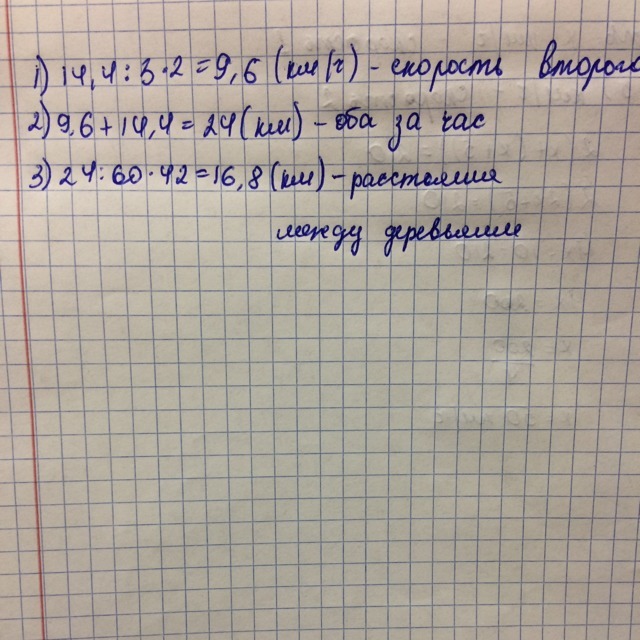 1) 14,4:3·2=9,6 (км/ч) - скорость второго
2) 9,6+14,4=24(км) - оба за час
3) 24:60·42=16,8(км) - расстояния
между деревьями